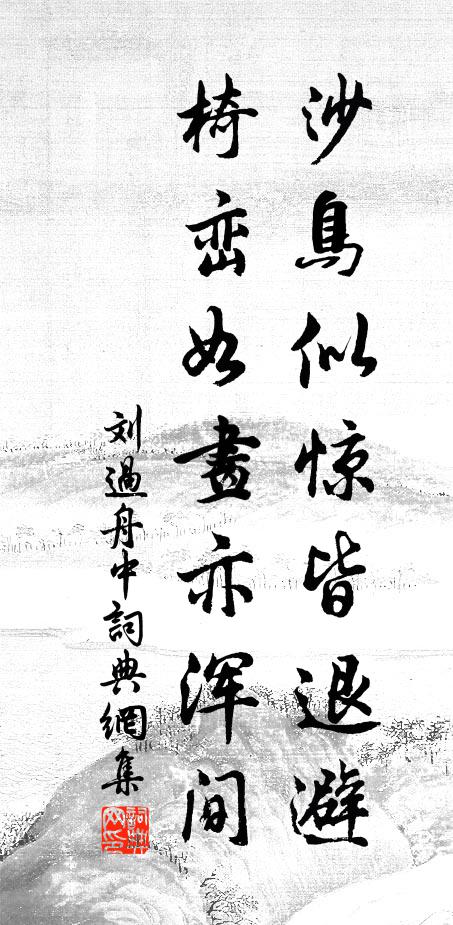 沙鳥似惊皆退避
椅峦如畫亦浑间
刘過舟中詞典網集